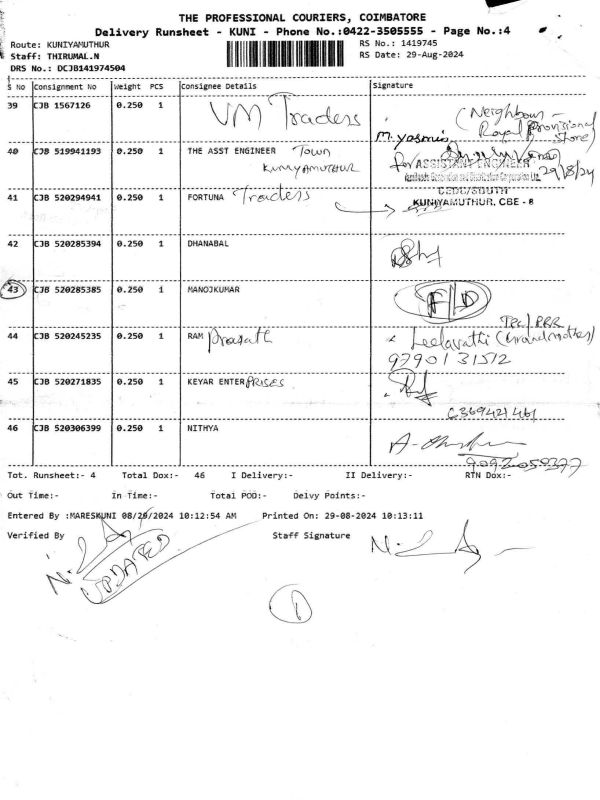 THE PROFESSIONAL COURIERS, COIMBATORE
Delivery Runsheet - KUNI - Phone No.:0422-3505555 - Page No.:4
Route: KUNIYAMUTHUR
RS No.: 1419745
Staff: THIRUMAL.N
RS Date: 29-Aug-2024
DRS No.: DCJB141974504
S No Consignment No Weight PCS Consignee Details Signature
39 CJB 1567126 0.250 1 VM Traders M. Yasmis (Neighbour - Royal Provisional Store)
40 CJB 519941193 0.250 1 THE ASST ENGINEER Town
KUNIYAMUTHUR
for ASSISTANT ENGINEER
29/8/24
KUNIYAMUTHUR, CBE - 8
41 CJB 520294941 0.250 1 FORTUNA Traders
42 CJB 520285394 0.250 1 DHANABAL
43 CJB 520285385 0.250 1 MANOJKUMAR F/D
44 CJB 520245235 0.250 1 RAM Prasath Leelavathi (Grandmother)
9790131512
45 CJB 520271835 0.250 1 KEYAR ENTERPRISES
6369421461
46 CJB 520306399 0.250 1 NITHYA
9092050377
Tot. Runsheet:- 4 Total Dox:- 46 I Delivery:- II Delivery:- RTN Dox:-
Out Time:- In Time:- Total POD:- Delvy Points:-
Entered By :MARESKUNI 08/29/2024 10:12:54 AM Printed On: 29-08-2024 10:13:11
Verified By Staff Signature
UPDATED
1